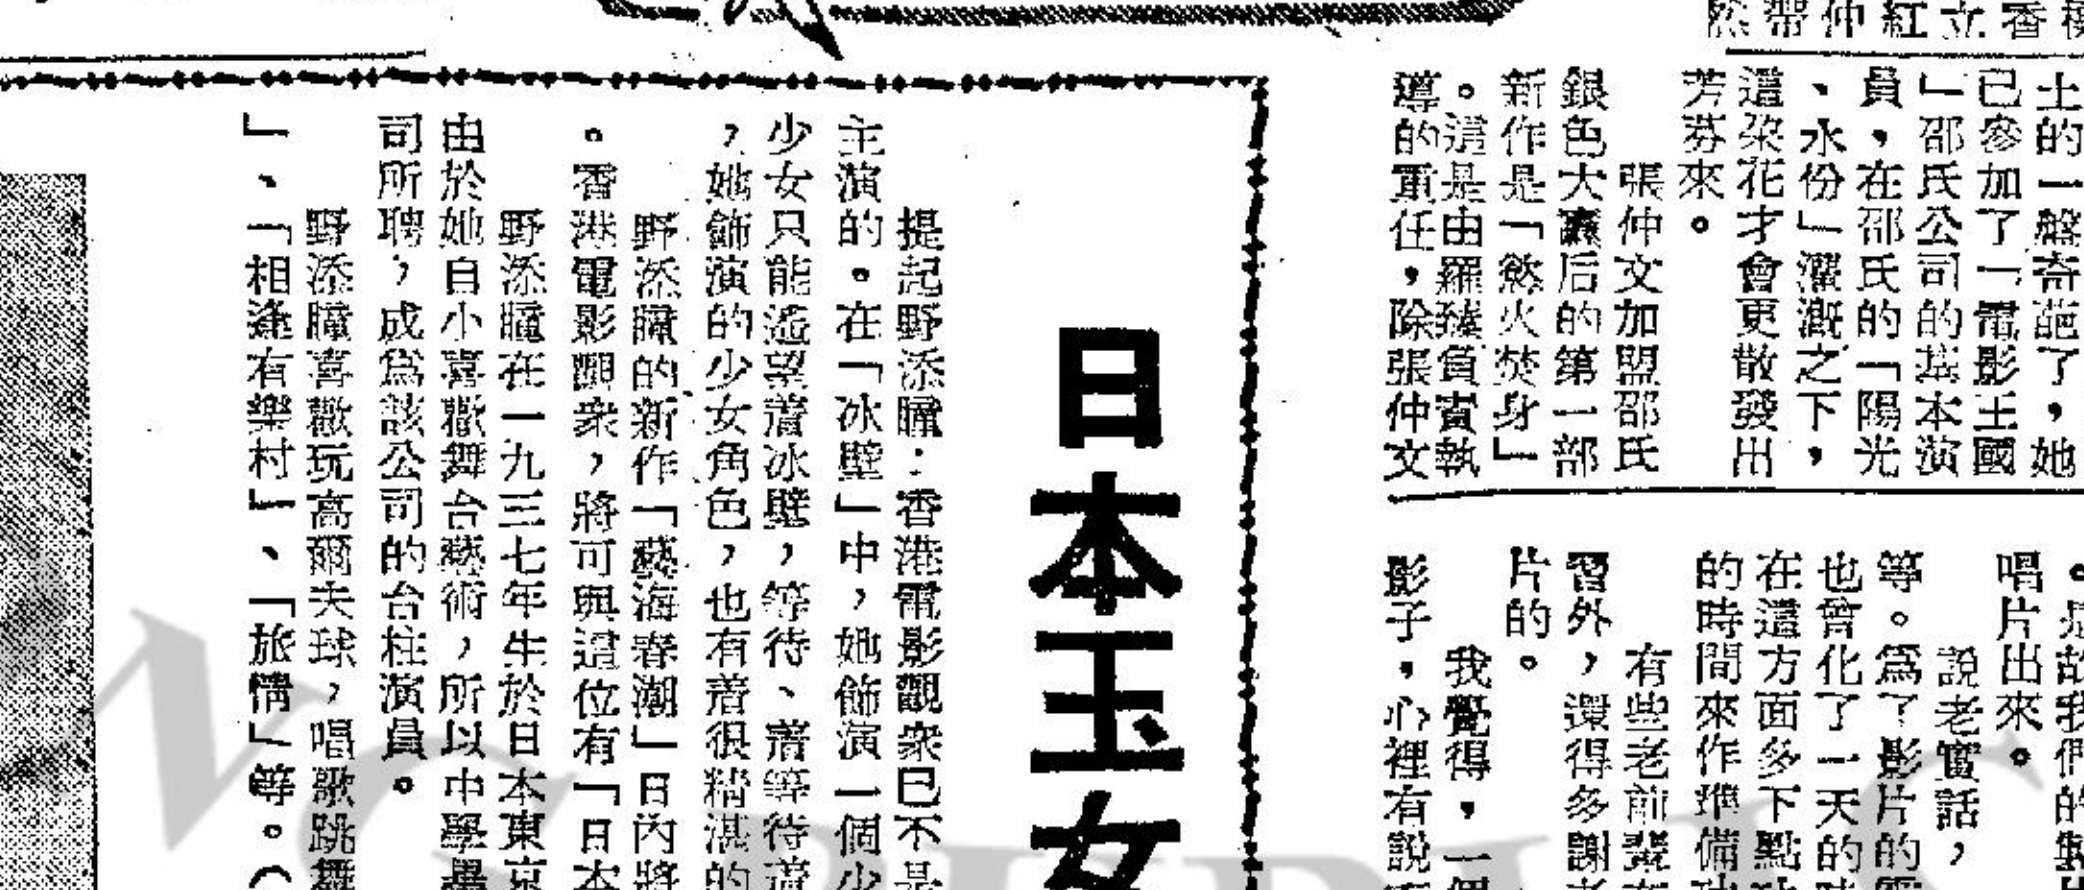 土的一盤奇葩了，她
已參加了「電影王國
」邵氏公司的基本演
員，在邵氏的「陽光
、水份」灌溉之下，
這朶花才會更散發出
芳芬來。
張仲文加盟邵氏
銀色大纛后的第一部
新作是「慾火焚身」
。這是由羅臻負責執
導的重任，除張仲文
唱片出來。
說老實話，
等。爲了影片的
也曾化了一天的時
在這方面多下點功
的時間來作準備功
有些老前輩
習外，還得多謝
片的。
我覺得，一個
影子，心裡有說
日本玉女
提起野添瞳：香港電影觀衆已不是
主演的。在「冰壁」中，她飾演一個少
少女只能遙望着冰壁，等待、着等待着
，她飾演的少女角色，也有着很精湛的
野添瞳的新作「藝海春潮」日內將
。香港電影觀衆，將可與這位有「日本
野添瞳在一九三七年生於日本東京
由於她自小喜歡舞台藝術，所以中學畢
司所聘，成爲該公司的台柱演員。
野添瞳喜歡玩高爾夫球，唱歌跳舞
」、「相逢有樂村」、「旅情」等。（